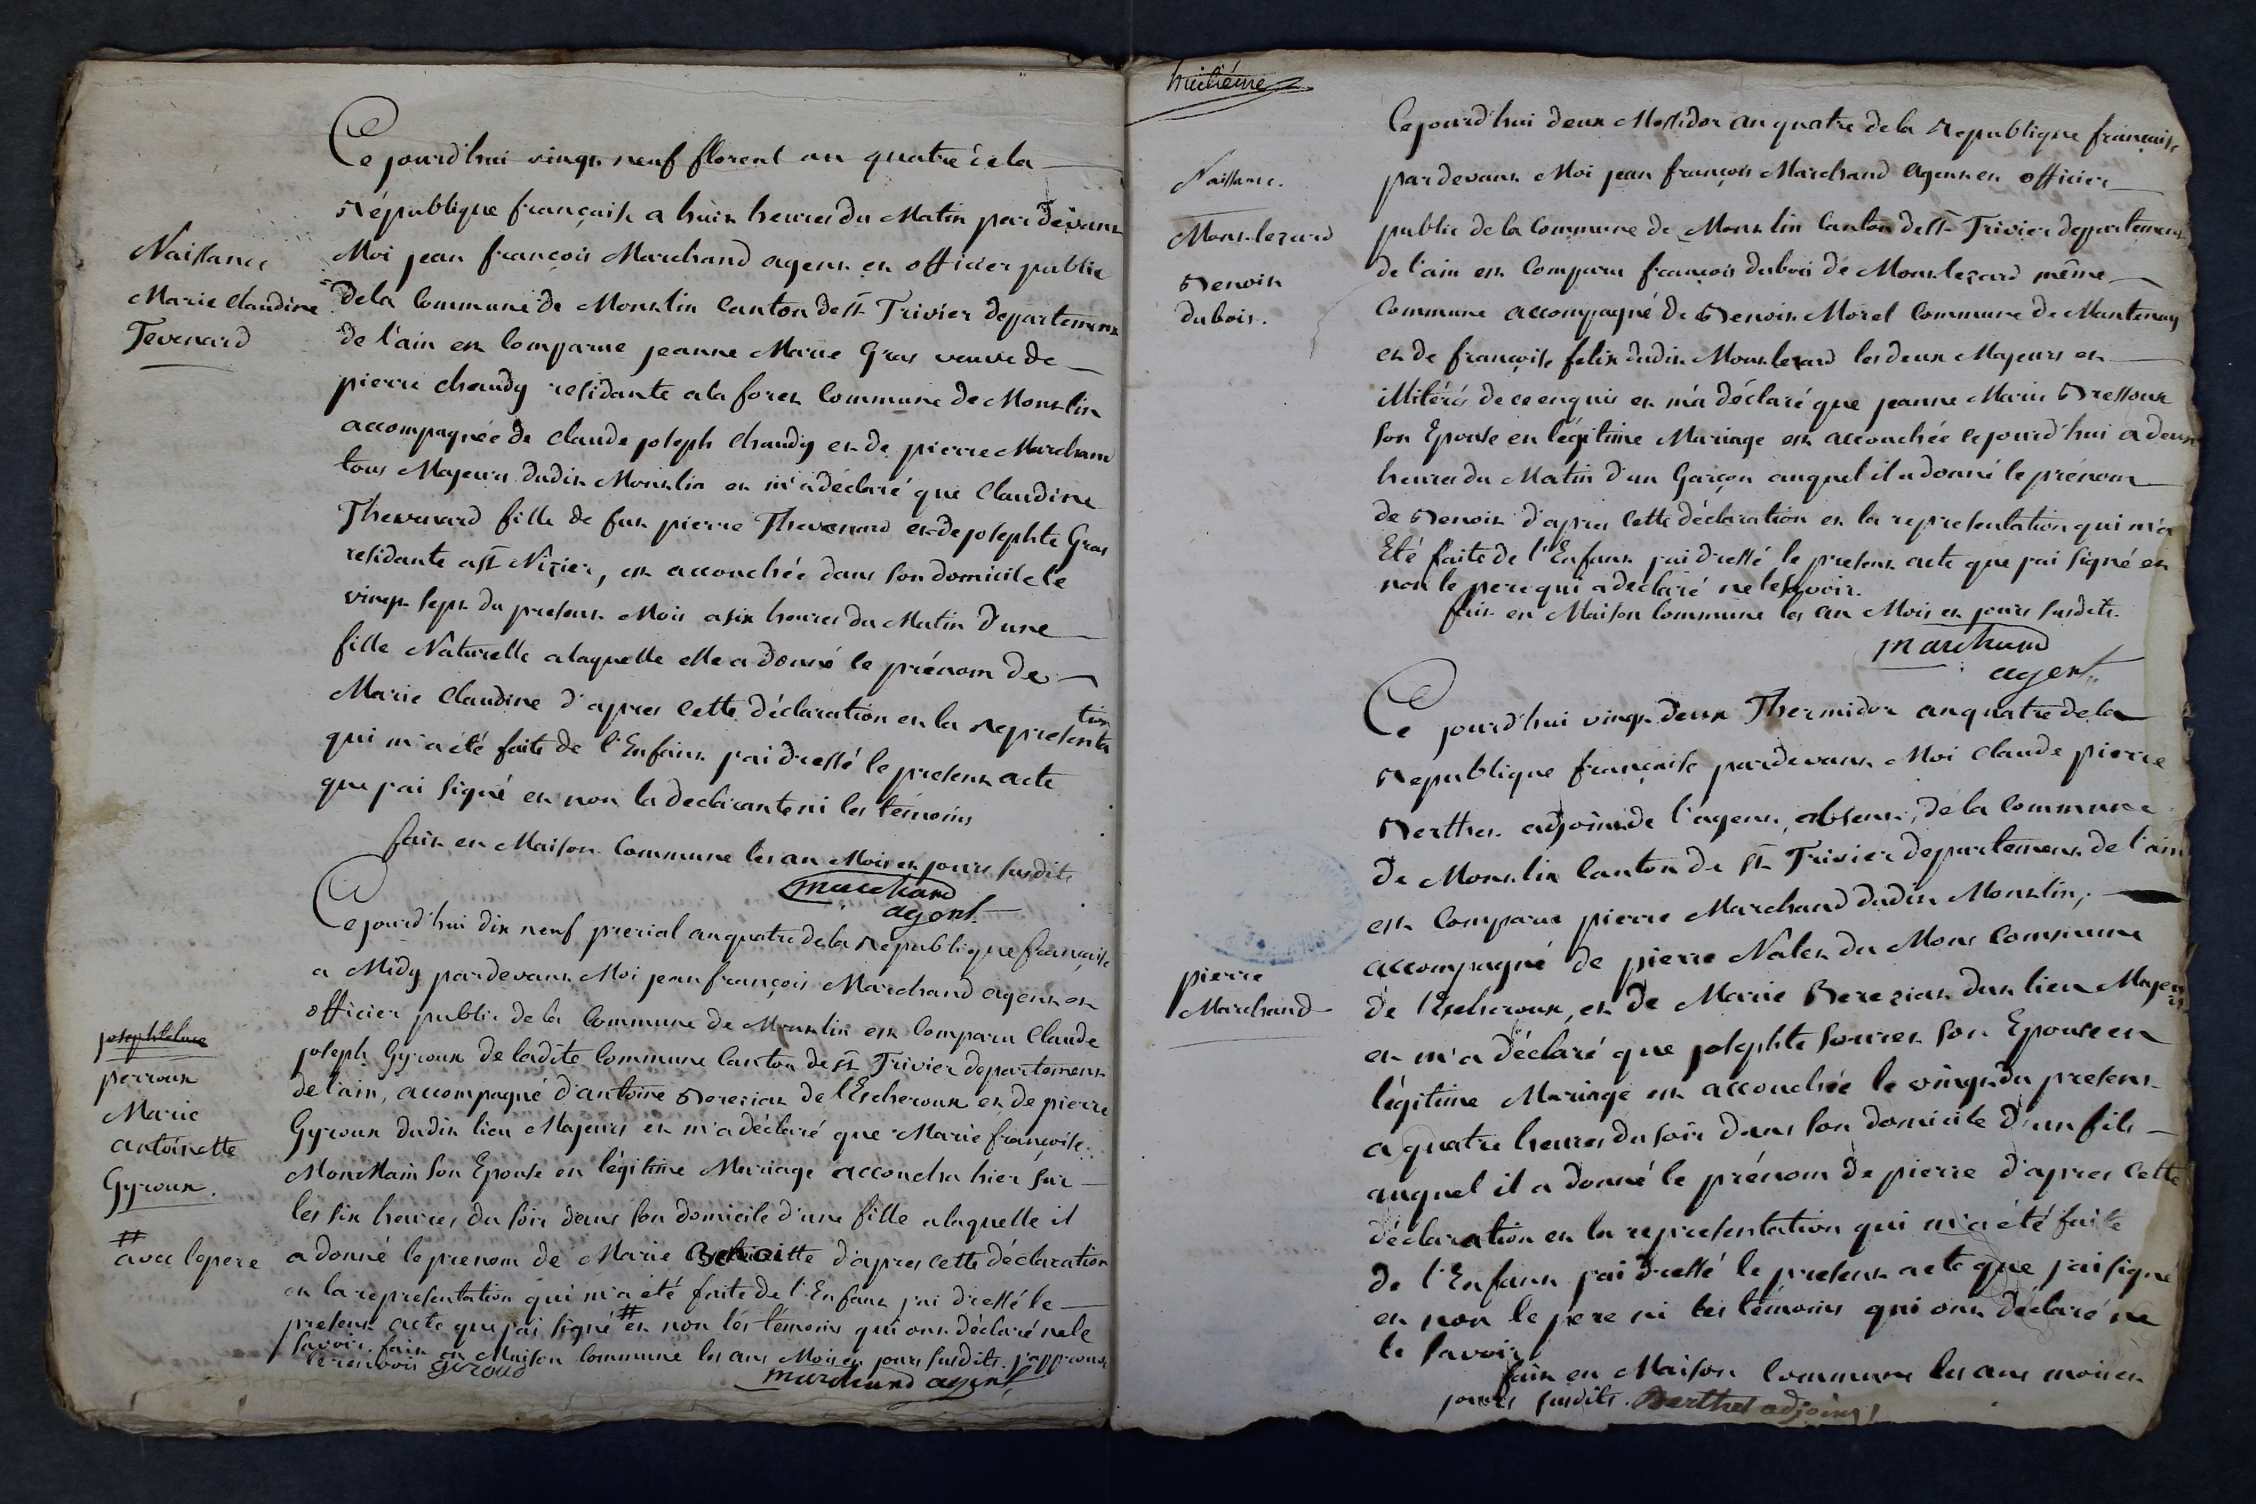 Naissance
Marie Claudine
Tevenard
Ce jourd'hui vingt neuf floreal an quatre de la
République française a huit heures du Matin par devant
Moi jean françois Marchand agent et officier public
de la Commune de Montlin Canton de St Trivier departement
de l'ain est Comparue jeanne Marie Gras veuve de
pierre chaudy residante a la foret Commune de Montlin
accompagnée de Claude joseph Chaudy et de pierre Marchand
tous Majeurs dudit Montlin et m'a déclaré que Claudine
Thevenard fille de fut pierre Thevenard et de josephte Gras
residante a St Nizier, est accouchée dans son domicile le
vingt sept du present Mois a six heures du Matin d'une
fille Naturelle a laquelle elle a donné le prénom de
Marie Claudine d'apres cette déclaration et la representa
tion
qui m'a été faite de l'Enfant j'ai dressé le present acte
que j'ai signé et non la declarante ni les témoins
fait en Maison Commune les an Mois et jours susdits
marchand
agent
josephte
perroux
Marie
antoinette
Gyroux.
# avec le pere
Ce jourd'hui dix neuf prerial an quatre de la Republique française
a Midy pardevant Moi jean françois Marchand agent et
officier public de la Commune de Montlin est Comparu Claude
joseph Gyroux de ladite Commune Canton de St Trivier departement
de l'ain, accompagné d'antoine Bereziat de l'Escheroux et de pierre
Gyroux dudit lieu Majeurs et m'a déclaré que Marie françoise
Son Epouse en légitime Mariage accoucha hier sur
les six heures du soir dans son domicile d'une fille a laquelle il
a donné le prenom de Marie d'apres cette déclaration
et la representation qui m'a été faite de l'Enfant j'ai dressé le
present acte que j'ai signé # et non les témoins qui ont déclaré ne le
savoir. fait en Maison Commune les ans Mois et jours susdits. j'approuve
le renvois giroud
marchand agent
huitiéme
Naissance.
Montlezard
Benoit
dubois.
Cejourd'hui deux Messidor an quatre de la Republique française
pardevant Moi jean françois Marchand agent et officier
public de la Commune de Montlin Canton de St Trivier departement
de l'ain est Comparu françois dubois de Montlezard même
Commune accompagné de Benoit Morel Commune de Mantenay
et de françoise felix dudit Montlezard les deux Majeurs et
illiterés de ce enquis et m'a déclaré que jeanne Marie Bressoux
Son Epouse en légitime Mariage est accouchée cejourd'hui a deux
heures du Matin d'un Garçon auquel il a donné le prénom
de Benoit d'apres cette déclaration et la representation qui m'a
Eté faite de l'Enfant j'ai dressé le present acte que j'ai signé et
non le pere qui a declaré ne le savoir.
fait en Maison Commune les an Mois et jours susdits.
marchand
agent
pierre
Marchand
Ce jourd'hui vingt deux Thermidor an quatre de la
Republique française pardevant Moi Claude pierre
Berthet adjoint de l'agent, absent, de la Commune
de Montlin Canton de St Trivier departement de l'ain
est Comparu pierre Marchand dudit Montlin,
accompagné de pierre Nalet du Mont Commune
de l'Escheroux, et de Marie Bereziat dud lieu Majeurs
et m'a déclaré que josephte Son Epouse en
légitime Mariage est accouchée le vingt du present
a quatre heures du soir dans son domicile d'un fils
auquel il a donné le prénom de pierre d'apres cette
déclaration et la representation qui m'a été faite
de l'Enfant j'ai dressé le present acte que j'ai signé
et non le pere ni les témoins qui ont déclaré ne
le savoir
fait en Maison Commune les ans mois et
jours susdits. Berthet adjoint